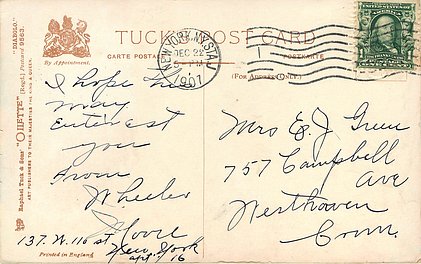 "DIABLO."
(Regd.) Postcard 9563.
"OILETTE"
Raphael Tuck & Sons'
ART PUBLISHERS TO THEIR MAJESTIES THE KING & QUEEN.
By Appointment.
TUCK'S POST CARD
CARTE POSTALE
POSTKARTE
(FOR ADDRESS ONLY.)
NEW YORK, N.Y. STA. J
DEC 22
5 - PM
1907
I hope this
may
interest
you
from
Wheeler
Moore
137. W. 116 st.
New York
apt. 16
Printed in England
Mrs E. J. Green
757 Campbell
Ave
Westhaven
Conn.